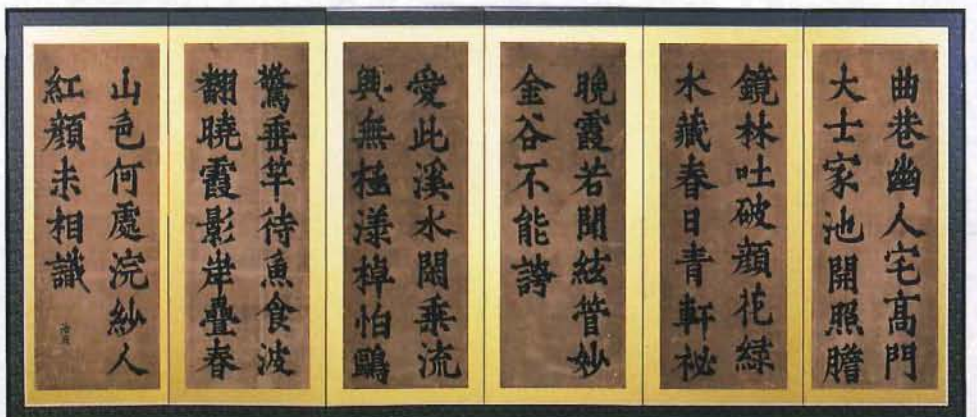 曲巷幽人宅高門
大士家池開照膽
鏡林吐破顔花綠
水藏春日青軒祕
晚霞若聞絃管妙
金谷不能誇
愛此溪水閑乗流
興無極漾棹怕鷗
驚垂竿待魚食波
翻曉霞影岸疊春
山色何處浣紗人
紅顔未相識